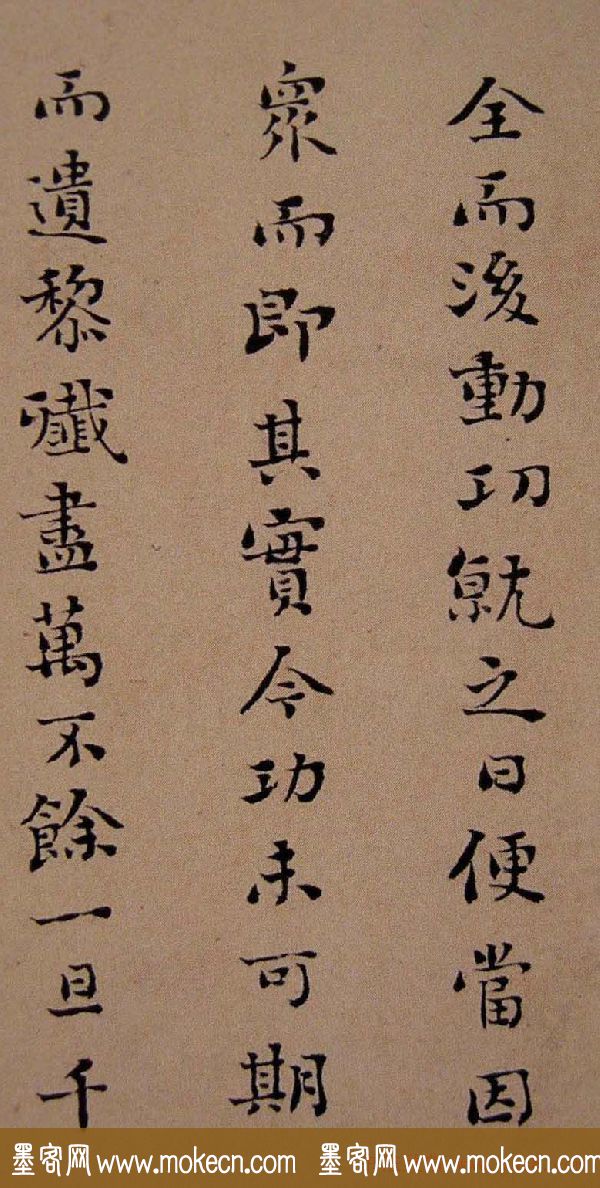 全而後動功就之日便當因
衆而即其實今功未可期
而遺黎殲盡萬不餘一且千
墨客网 www.mokecn.com 墨客网 www.mokecn.com